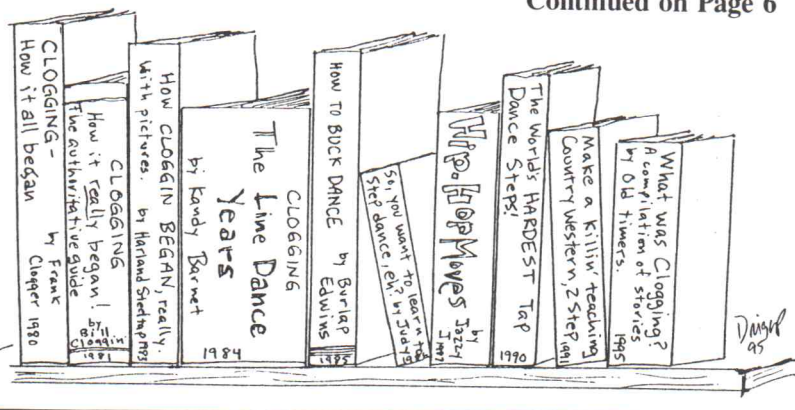 Continued on Page 6
CLOGGING-
How it all began
by Frank
Clogger 1980
CLOGGING
How it really began!
The authoritative guide
by
Bill
Cloggin'
1981
HOW CLOGGIN BEGAN, really.
With pictures. by Harland Steptap 1983
CLOGGING
The Line Dance
Years
by Kandy Barnet
1984
HOW TO BUCK DANCE by Burlap
Edwins
1985
So, you want to learn to
Step dance, eh? by Jody
Hip. HOP Moves
by
Jazzy
J.
The World's HARDEST Tap
Dance Steps!
1990
Make a Killin' teaching
Country Western, 2 Step
1991
What was Clogging?
A compilation of stories
by Old timers.
1995
95